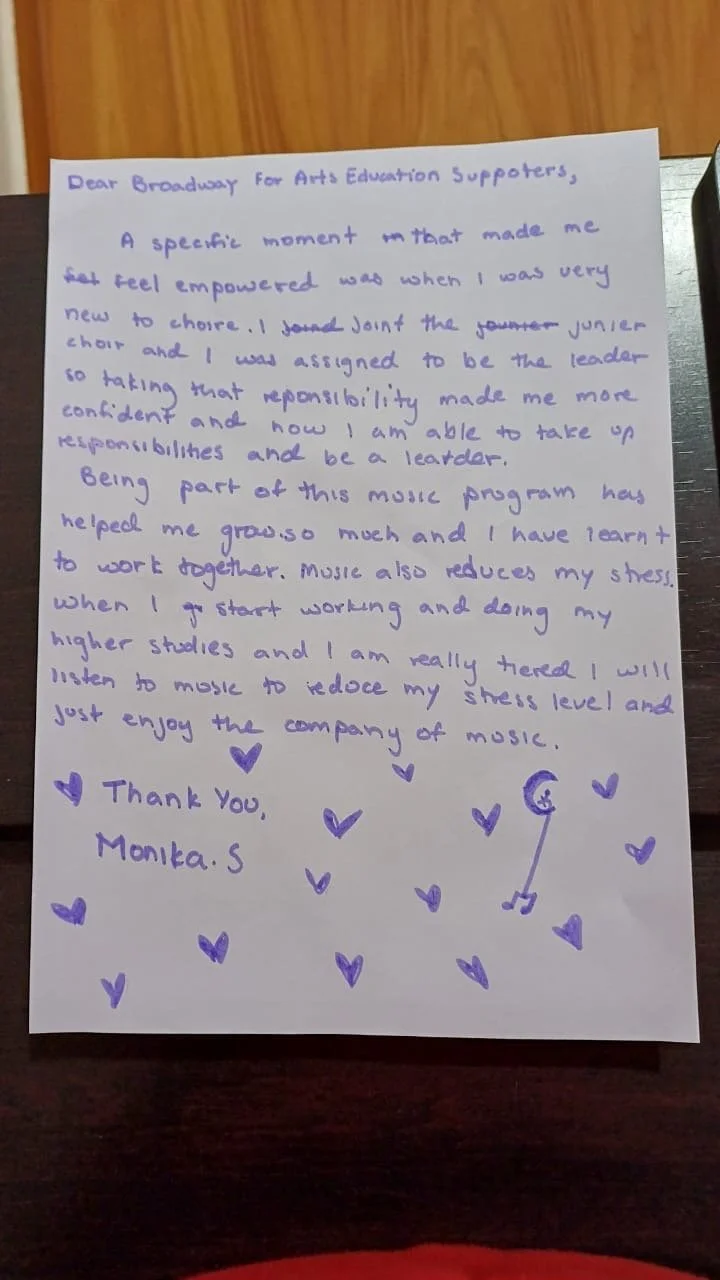 Dear Broadway For Arts Education Suppoters,
A specific moment that made me
feel empowered was when I was very
new to choire. I joind joint the jounier junier
choir and I was assigned to be the leader
so taking that reponsibility made me more
confident and now I am able to take up
responsibilities and be a learder.
Being part of this music program has
helped me grow.so much and I have learnt
to work together. Music also reduces my stress.
when I start working and doing my
higher studies and I am really tiered I will
listen to music to redoce my stress level and
just enjoy the company of music.
Thank You,
Monika. S